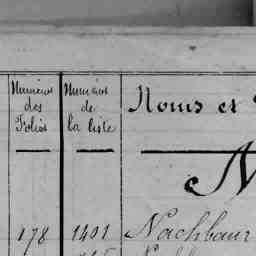 Numéros des Folios
Numéros de la liste
Noms et
N
178 1401 Nachbaur